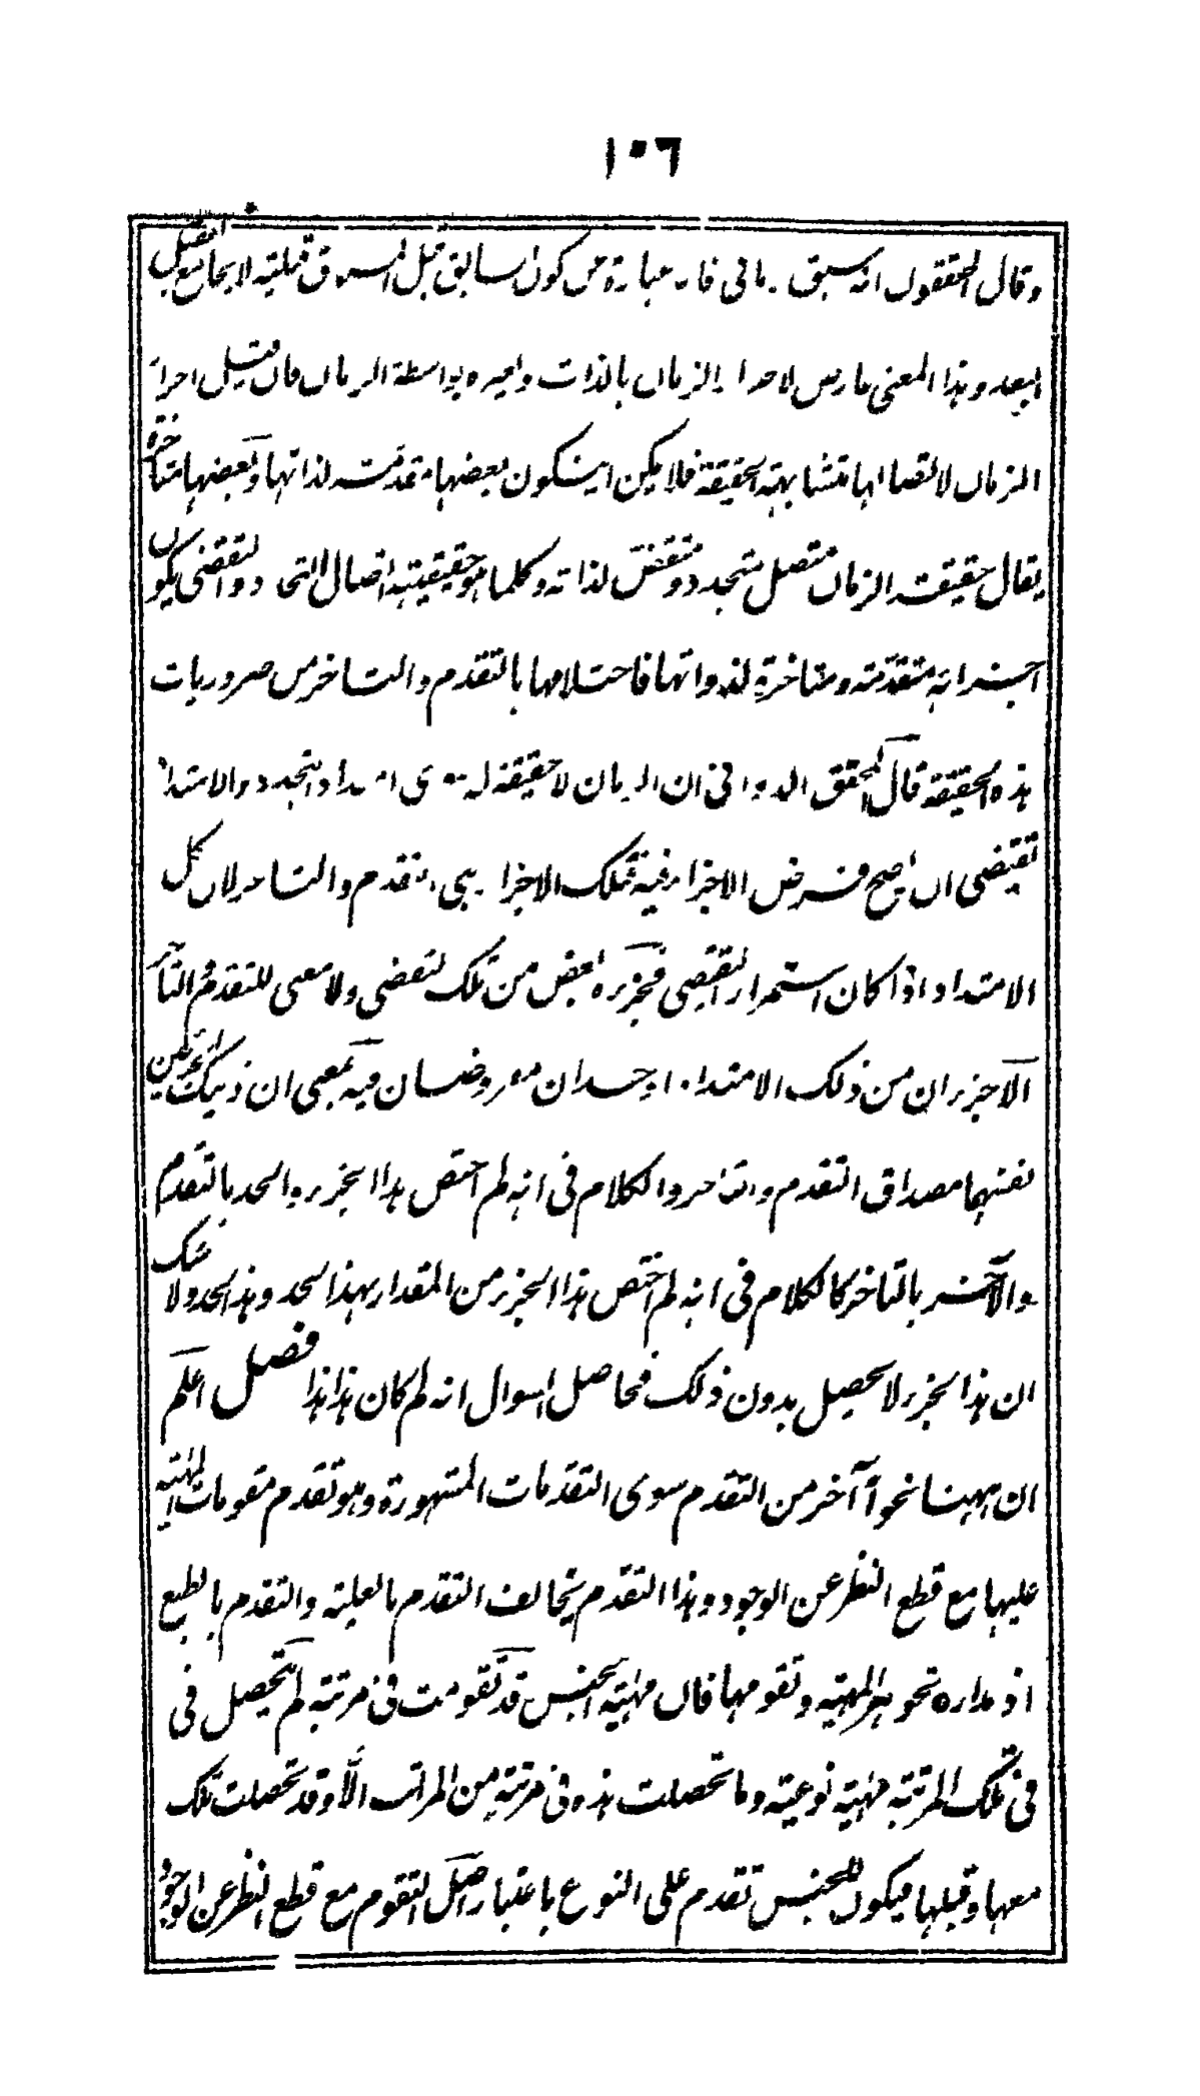 ١٠٦
وقال المحققون انه سبق زمانى فانه عبارة عن كون السابق قبل المسبوق قبلية لا يجامع القبل
البعد وهذا المعنى عارض لاجزاء الزمان بالذات ولغيره بواسطة الزمان فان قيل اجزاء
الزمان لاتصالها متشابهة الحقيقة فلا يمكن ان يكون بعضها متقدمة لذاتها وبعضها متأخرة
يقال حقيقت الزمان متصل متجدد متقض لذاته وكلما هو حقيقته اتصال التجدد والتقضى يكون
اجزائه متقدمة ومتاخرة لذواتها فاختلافها بالتقدم والتاخر من ضروريات
هذه الحقيقة قال المحقق الدوانى ان الزمان لا حقيقة له سوى امتداد التجدد والامتداد
تقتضى ان يصح فرض الاجزاء فيه فتلك الاجزاء التقدم والتاخر لان كل
الامتداد اذا كان استمرار التقضى فجزءه بعض من تلك التقضى ولا معنى للتقدم والتأخر
الا جزءان من ذلك الامتداد او حدان مفروضان فيه بمعنى ان ذينك
نفسهما مصداق التقدم والتاخر والكلام فى انه لم اختص هذا الجزء والحد بالتقدم
والآخر بالتاخر كالكلام فى انه لم اختص هذا الجزء من المقدار بهذا الحد وهذا الحد ولا شك
ان هذا الجزء لا يحصل بدون ذلك فحاصل السوال انه لم كان هذا هذا فصل اعلم
ان ههنا نحواً آخر من التقدم سوى التقدمات المشهورة وهو تقدم مقومات المهية
عليها مع قطع النظر عن الوجود وهذا التقدم يخالف التقدم بالعلية والتقدم بالطبع
اذ مداره تجوهر المهية وتقومها فان مهية الجنس قد تقومت فى مرتبة لم تتحصل فى
فى تلك المرتبة مهية نوعية وما تحصلت هذه فى مرتبة من المراتب الّا وقد تحصلت تلك
معها وقبلها فيكون للجنس تقدم على النوع باعتبار اصل التقوم مع قطع النظر عن الوجود